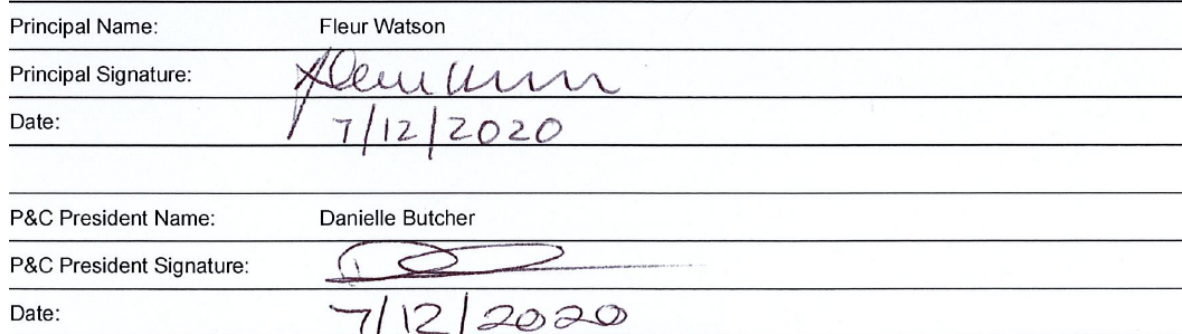 Principal Name: Fleur Watson
Principal Signature:
Date: 7/12/2020
P&C President Name: Danielle Butcher
P&C President Signature:
Date: 7/12/2020